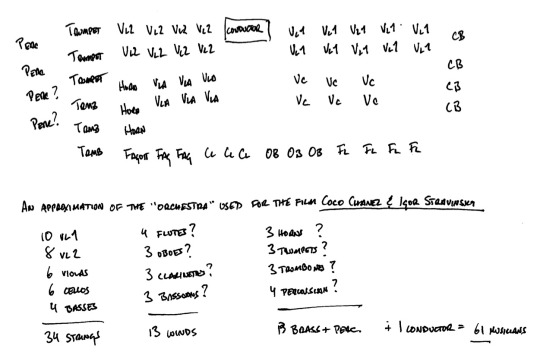 PERC TRUMPET VL2 VL2 VL2 VL2 CONDUCTOR VL1 VL1 VL1 VL1 VL1 CB
PERC TRUMPET VL2 VL2 VL2 VL2 VL1 VL1 VL1 VL1 VL1 CB
PERC? TRUMPET HORN VLA VLA VLA VC VC VC CB
PERC? TRMB HORN VLA VLA VLA VC VC VC CB
TRMB HORN
TRMB FAGOTT FAG FAG CL CL CL OB OB OB FL FL FL FL
AN APPROXIMATION OF THE "ORCHESTRA" USED FOR THE FILM COCO CHANEL & IGOR STRAVINSKY
10 VL1 4 FLUTES? 3 HORNS ?
8 VL2 3 OBOES? 3 TRUMPETS?
6 VIOLAS 3 CLARINETS? 3 TROMBONES?
6 CELLOS 3 BASSOONS? 4 PERCUSSION?
4 BASSES
34 STRINGS 13 WINDS 13 BRASS + PERC. + 1 CONDUCTOR = 61 MUSICIANS